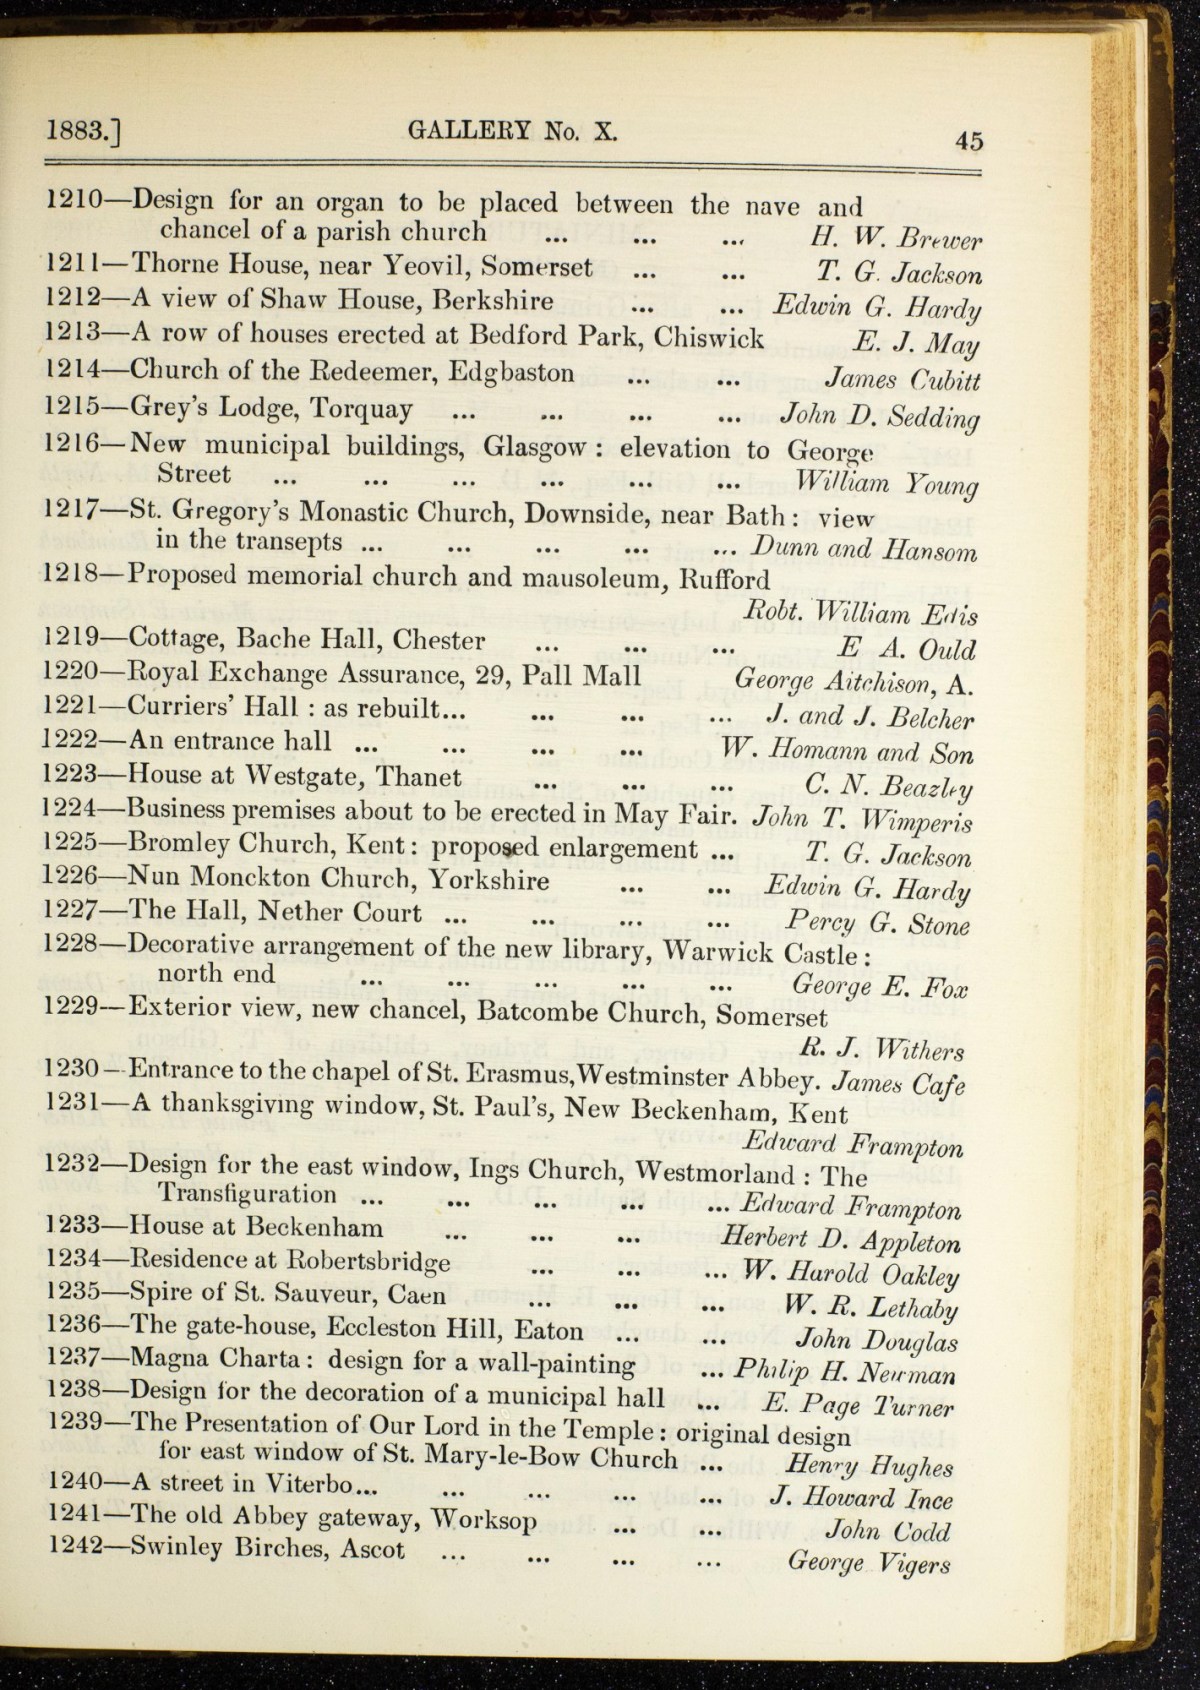 1883.] GALLERY No. X. 45
1210—Design for an organ to be placed between the nave and
chancel of a parish church ... ... ... H. W. Brewer
1211—Thorne House, near Yeovil, Somerset ... ... T. G. Jackson
1212—A view of Shaw House, Berkshire ... ... Edwin G. Hardy
1213—A row of houses erected at Bedford Park, Chiswick E. J. May
1214—Church of the Redeemer, Edgbaston ... ... James Cubitt
1215—Grey's Lodge, Torquay ... ... ... ... John D. Sedding
1216—New municipal buildings, Glasgow : elevation to George
Street ... ... ... ... ... ... William Young
1217—St. Gregory's Monastic Church, Downside, near Bath : view
in the transepts ... ... ... ... ... Dunn and Hansom
1218—Proposed memorial church and mausoleum, Rufford
Robt. William Edis
1219—Cottage, Bache Hall, Chester ... ... ... E A. Ould
1220—Royal Exchange Assurance, 29, Pall Mall George Aitchison, A.
1221—Curriers' Hall : as rebuilt... ... ... ... J. and J. Belcher
1222—An entrance hall ... ... ... ... W. Homann and Son
1223—House at Westgate, Thanet ... ... ... C. N. Beazley
1224—Business premises about to be erected in May Fair. John T. Wimperis
1225—Bromley Church, Kent : proposed enlargement ... T. G. Jackson
1226—Nun Monckton Church, Yorkshire ... ... Edwin G. Hardy
1227—The Hall, Nether Court ... ... ... ... Percy G. Stone
1228—Decorative arrangement of the new library, Warwick Castle :
north end ... ... ... ... ... George E. Fox
1229—Exterior view, new chancel, Batcombe Church, Somerset
R. J. Withers
1230—Entrance to the chapel of St. Erasmus, Westminster Abbey. James Cafe
1231—A thanksgiving window, St. Paul's, New Beckenham, Kent
Edward Frampton
1232—Design for the east window, Ings Church, Westmorland : The
Transfiguration ... ... ... ... ... Edward Frampton
1233—House at Beckenham ... ... ... Herbert D. Appleton
1234—Residence at Robertsbridge ... ... ... W. Harold Oakley
1235—Spire of St. Sauveur, Caen ... ... ... W. R. Lethaby
1236—The gate-house, Eccleston Hill, Eaton ... ... John Douglas
1237—Magna Charta : design for a wall-painting ... Philip H. Newman
1238—Design for the decoration of a municipal hall ... E. Page Turner
1239—The Presentation of Our Lord in the Temple : original design
for east window of St. Mary-le-Bow Church ... Henry Hughes
1240—A street in Viterbo... ... ... ... ... J. Howard Ince
1241—The old Abbey gateway, Worksop ... ... John Codd
1242—Swinley Birches, Ascot ... ... ... ... George Vigers